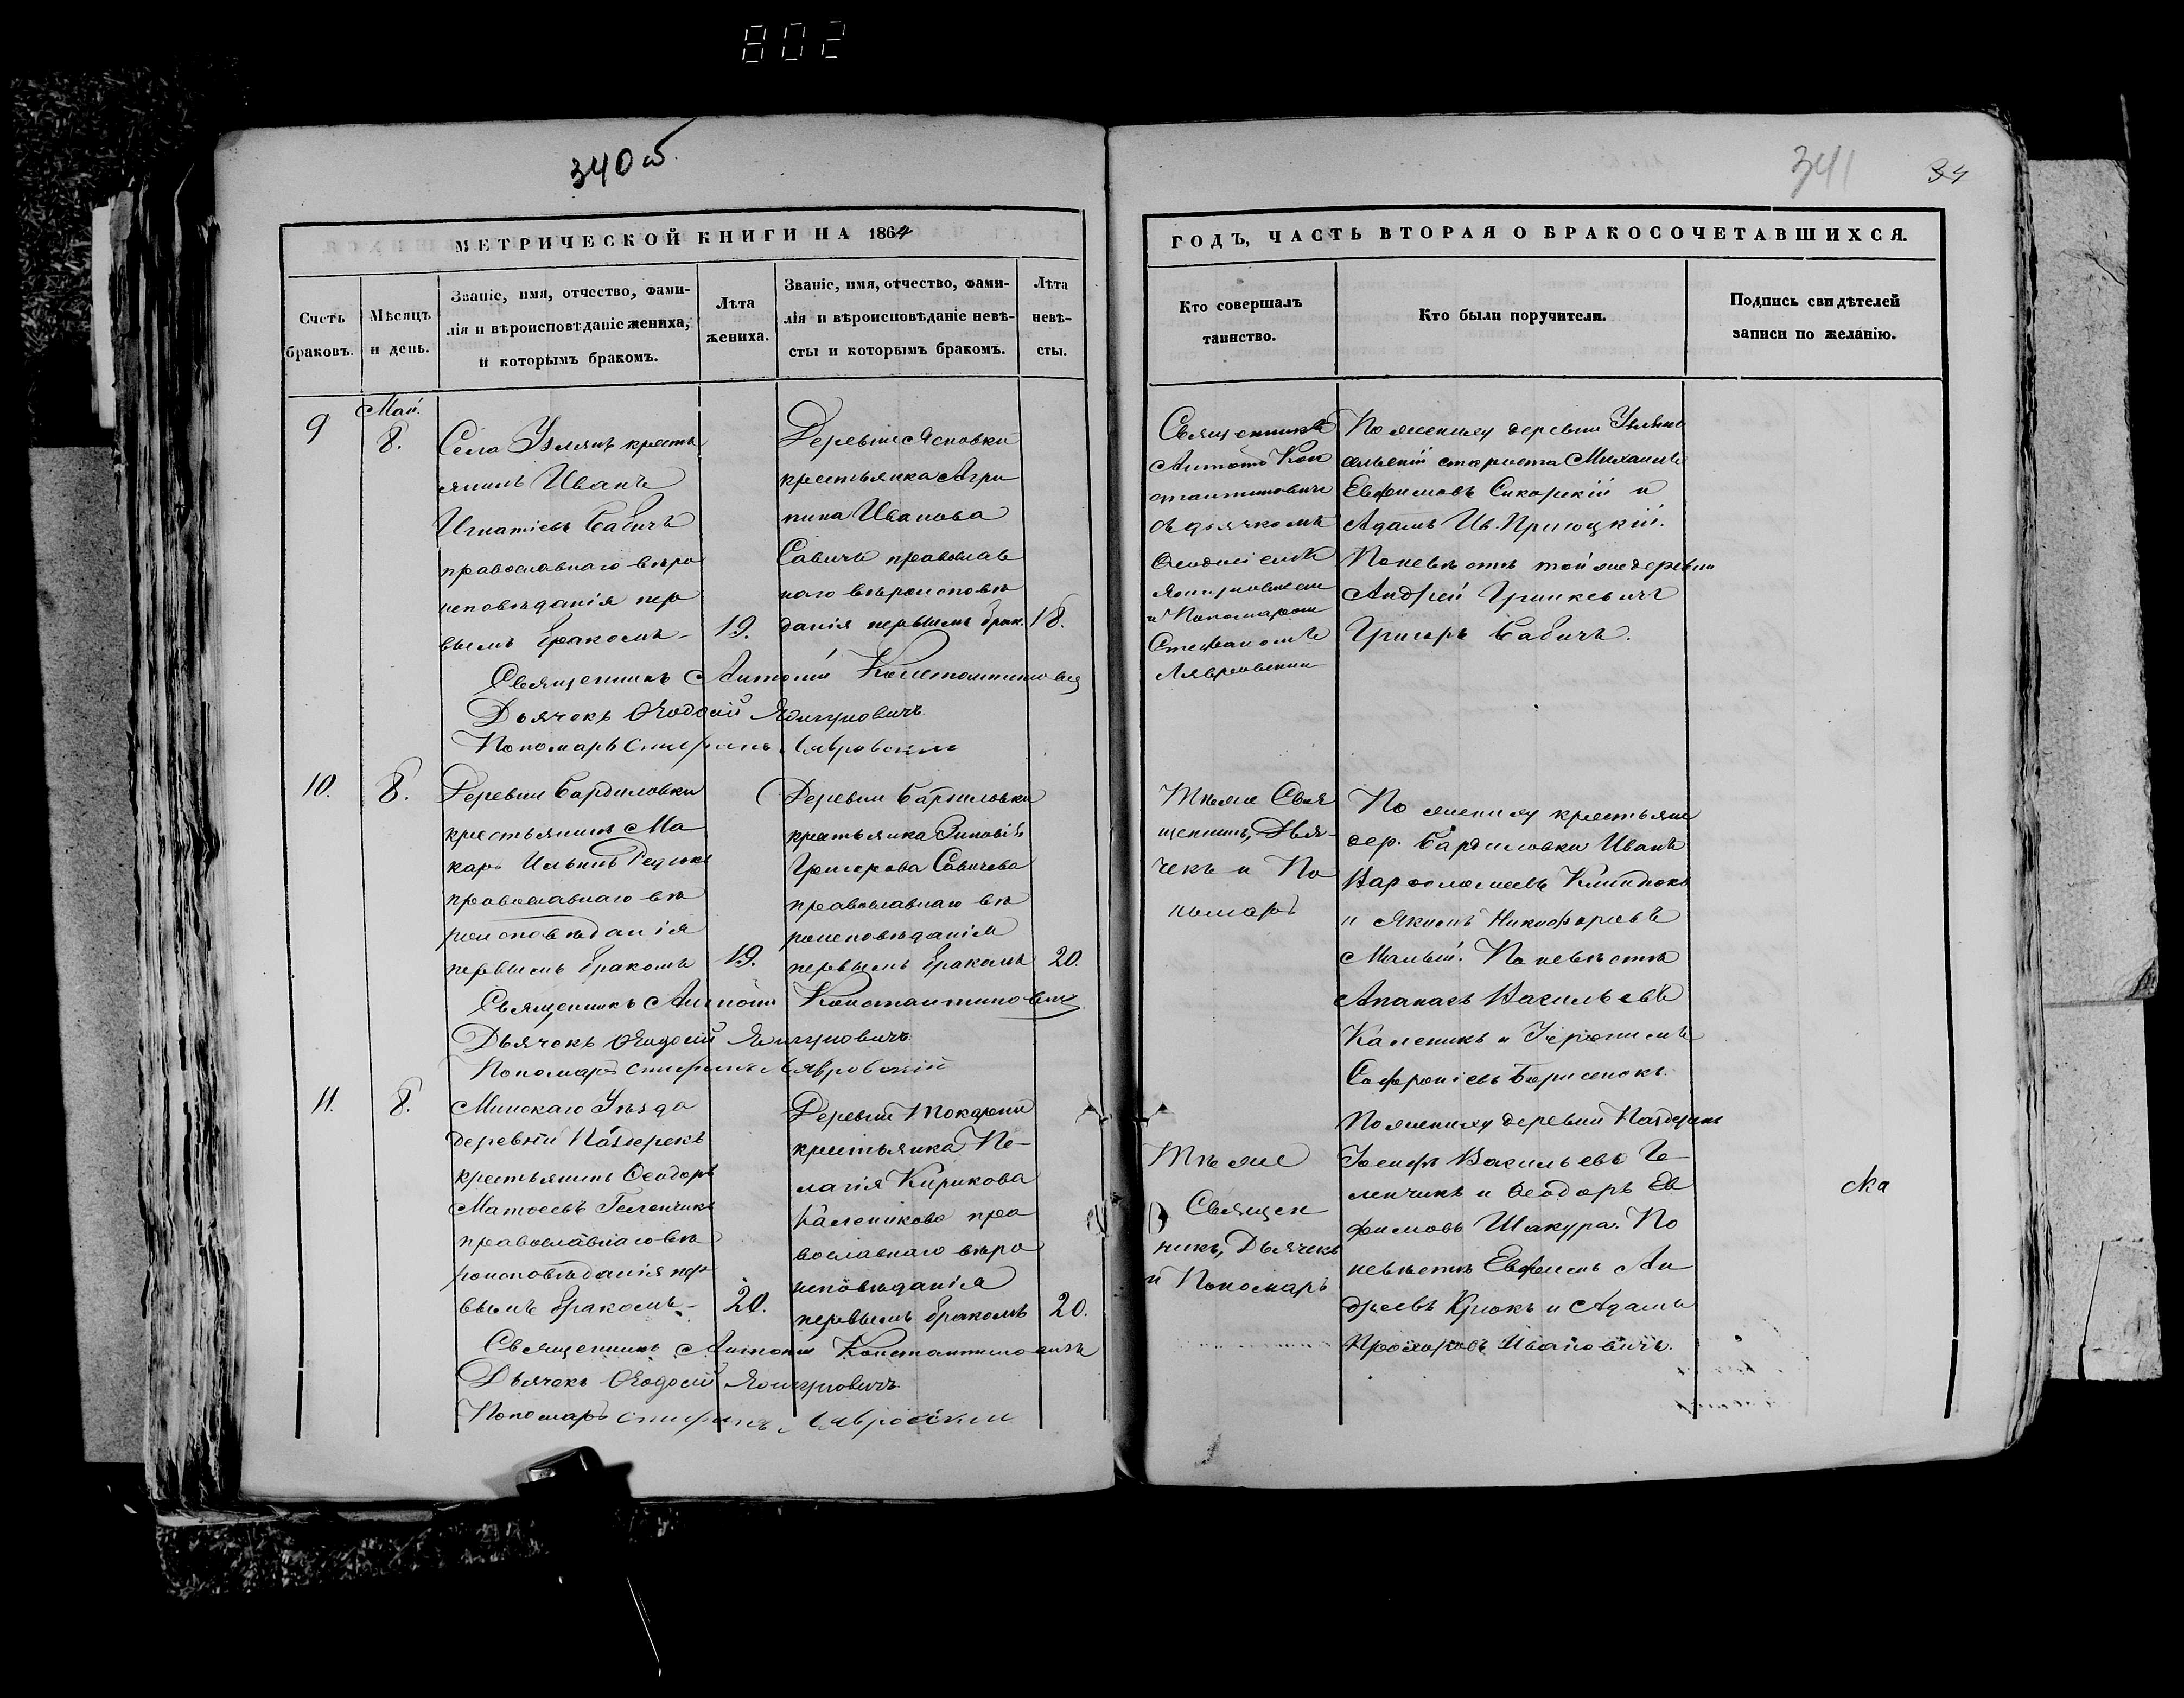 802
340 об.
МЕТРИЧЕСКОЙ КНИГИ НА 1864
Счетъ браковъ.
Мѣсяцъ и день.
Званіе, имя, отчество, фами-
лія и вѣроисповѣданіе жениха,
и которымъ бракомъ.
Лѣта
жениха.
Званіе, имя, отчество, фами-
лія и вѣроисповѣданіе невѣ-
сты и которымъ бракомъ.
Лѣта
невѣ-
сты.
9
Май.
8.
Села Узлянъ кресть
янинъ Иванъ
Игнатіевъ Бабичъ
православнаго вѣро
исповѣданія пер
вымъ бракомъ
19.
Деревни Ясновки
крестьянка Агри
пина Иванова
Савичъ православ
наго вѣроисповѣ
данія первымъ брак.
18.
Священникъ Антоній Константиновичъ
Дьячекъ Ѳеодосій
Пономарь Стефанъ Лавровскій
10.
8.
Деревни Бардиловки
крестьянинъ Ма
каръ Ильинъ
православнаго вѣ
роисповѣданія
первымъ бракомъ
19.
Деревни Бардиловки
крестьянка Зиновія
Григорова Савичова
православнаго вѣ
роисповѣданія
первымъ бракомъ
20.
Священникъ Антоній Константиновичъ
Дьячекъ Ѳеодосій
Пономарь Стефанъ Лавровскій
11.
8.
Минскаго Уѣзда
деревни Паздерекъ
крестьянинъ Ѳеодоръ
Матѳеевъ Геленчикъ
православнаго вѣ
роисповѣданія пер
вымъ бракомъ
20.
Деревни Токарни
крестьянка Пе-
лагія Кирикова
Каленикова пра
вославнаго вѣро
исповѣданія
первымъ бракомъ
20.
Священникъ Антоній Константиновичъ
Дьячекъ Ѳеодосій
Пономарь Стефанъ Лавровскій
341
34
ГОДЪ, ЧАСТЬ ВТОРАЯ О БРАКОСОЧЕТАВШИХСЯ.
Кто совершалъ
таинство.
Кто были поручители.
Подпись свидѣтелей
записи по желанію.
Священникъ
Антоній Кон
стантиновичъ
съ дьячкомъ
Ѳеодосіемъ
и Пономаремъ
Стефаномъ
Лавровскимъ
По жениху деревни Узлянъ
сельскій староста Михаилъ
Евфимовъ Сикорскій и
Адамъ Ив.
По невѣстѣ той же деревни
Андрей Гринкевичъ
Григоръ Бабичъ.
Тѣже Свя
щенникъ, Дья-
чекъ и По
номарь
По жениху крестьяне
дер. Бардиловки Иванъ
Варѳоломеевъ
и Якимъ Никифоровъ
Малый. По невѣстѣ
Апанасъ Васильевъ
Каленикъ и Іеронимъ
Софроніевъ Борисенокъ.
Тѣже
Священ
никъ, Дьячекъ
и Пономарь
По жениху деревни Паздерекъ
Іосифъ Васильевъ Ге-
ленчикъ и Ѳеодоръ Ев
фимовъ Шакура. По
невѣстѣ Евфимъ Ан
дреевъ Крюкъ и Адамъ
Прохоровъ Ивановичъ.
ска